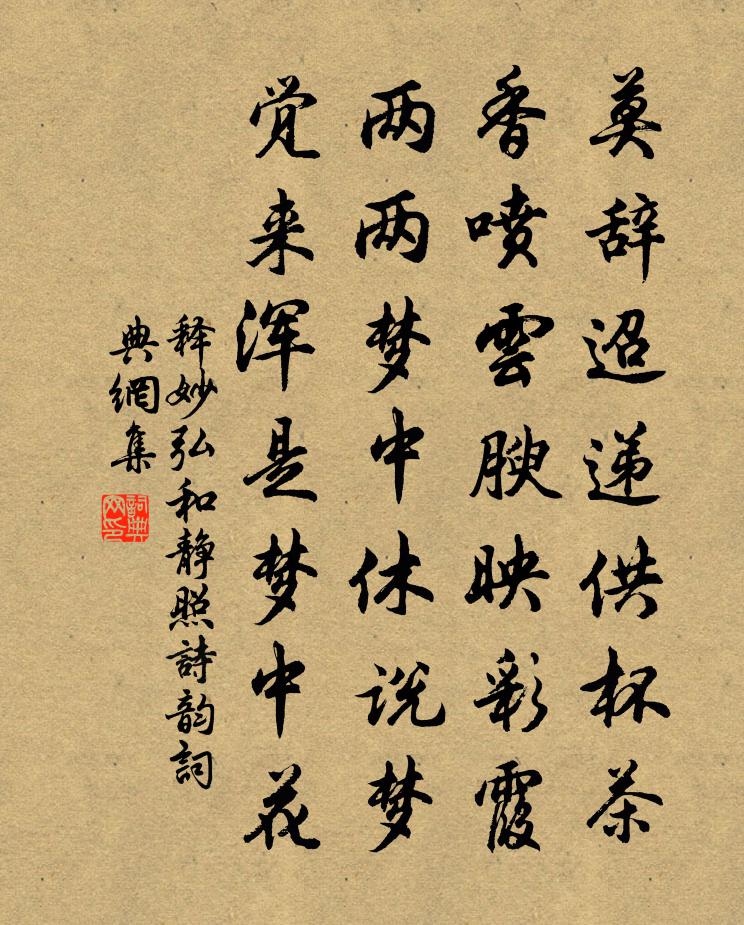 莫辞迢递供杯茶
香喷雲腴映彩霞
两两梦中休说梦
觉来浑是梦中花
释妙弘和静照詩韵詞
典網集
詞典
网印